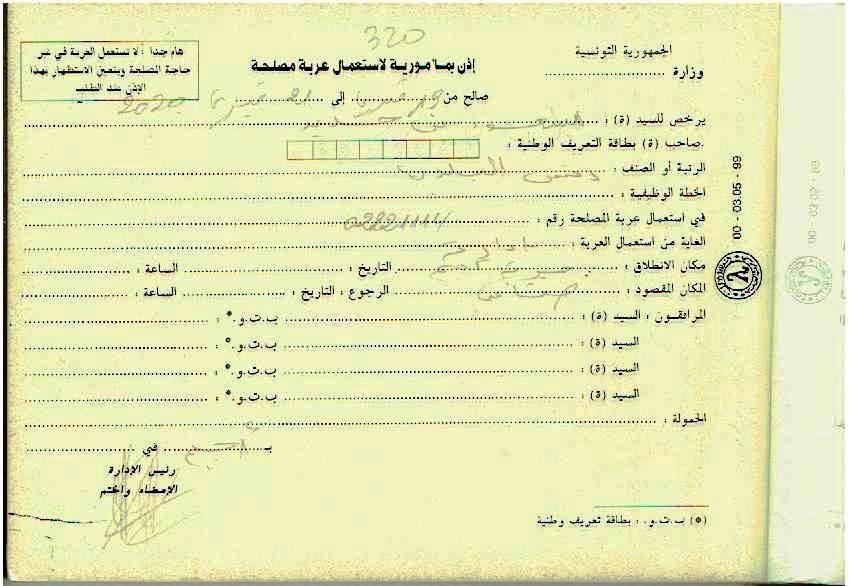 320
الجمهورية التونسية
وزارة ..............................
هام جدا : لا تستعمل العربة في غير
حاجة المصلحة ويتعين الاستظهار بهذا
الإذن عند الطلب
إذن بمأمورية لاستعمال عربة مصلحة
صالح من 19 ........ إلى 21 ........ 2020
يرخص للسيد (ة) : ........
صاحب (ة) بطاقة التعريف الوطنية :
الرتبة أو الصنف : ........
الخطة الوظيفية : ........
في استعمال عربة المصلحة رقم : ........
الغاية من استعمال العربة : ........
مكان الانطلاق : ........ التاريخ : ........ الساعة : ........
المكان المقصود : ........ الرجوع : التاريخ : ........ الساعة : ........
المرافقون : السيد (ة) : ........ ب.ت.و.* : ........
السيد (ة) : ........ ب.ت.و.* : ........
السيد (ة) : ........ ب.ت.و.* : ........
السيد (ة) : ........ ب.ت.و.* : ........
الحمولة : ........
بـ ........ في ........
رئيس الإدارة
الإمضاء والختم
(*) ب.ت.و. : بطاقة تعريف وطنية
00 - 03.05 - 99
00 - 03.05 - 99